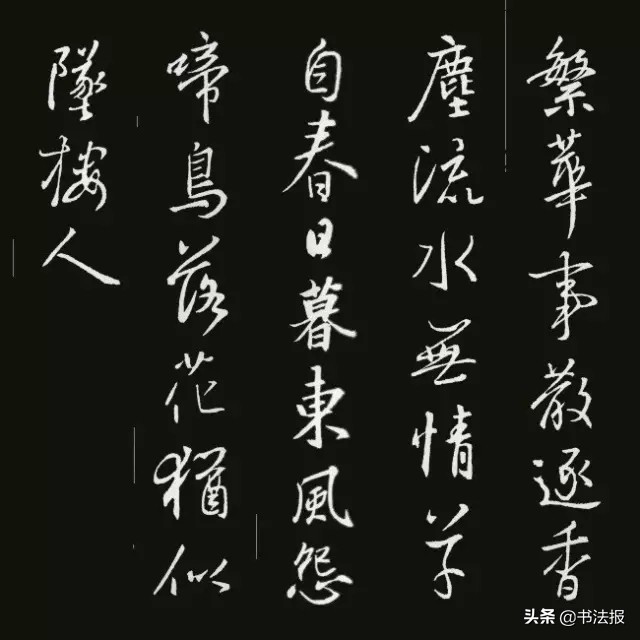 繁華事散逐香
塵流水無情草
自春日暮東風怨
啼鳥落花猶似
墜樓人
头条 @书法报